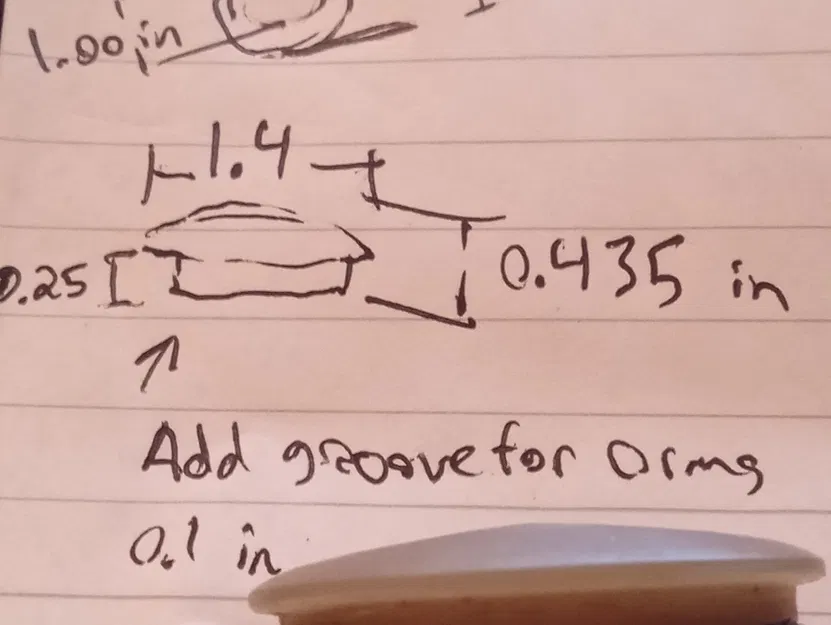 1.00 in
1.4
0.25
0.435 in
Add groove for Oring
0.1 in